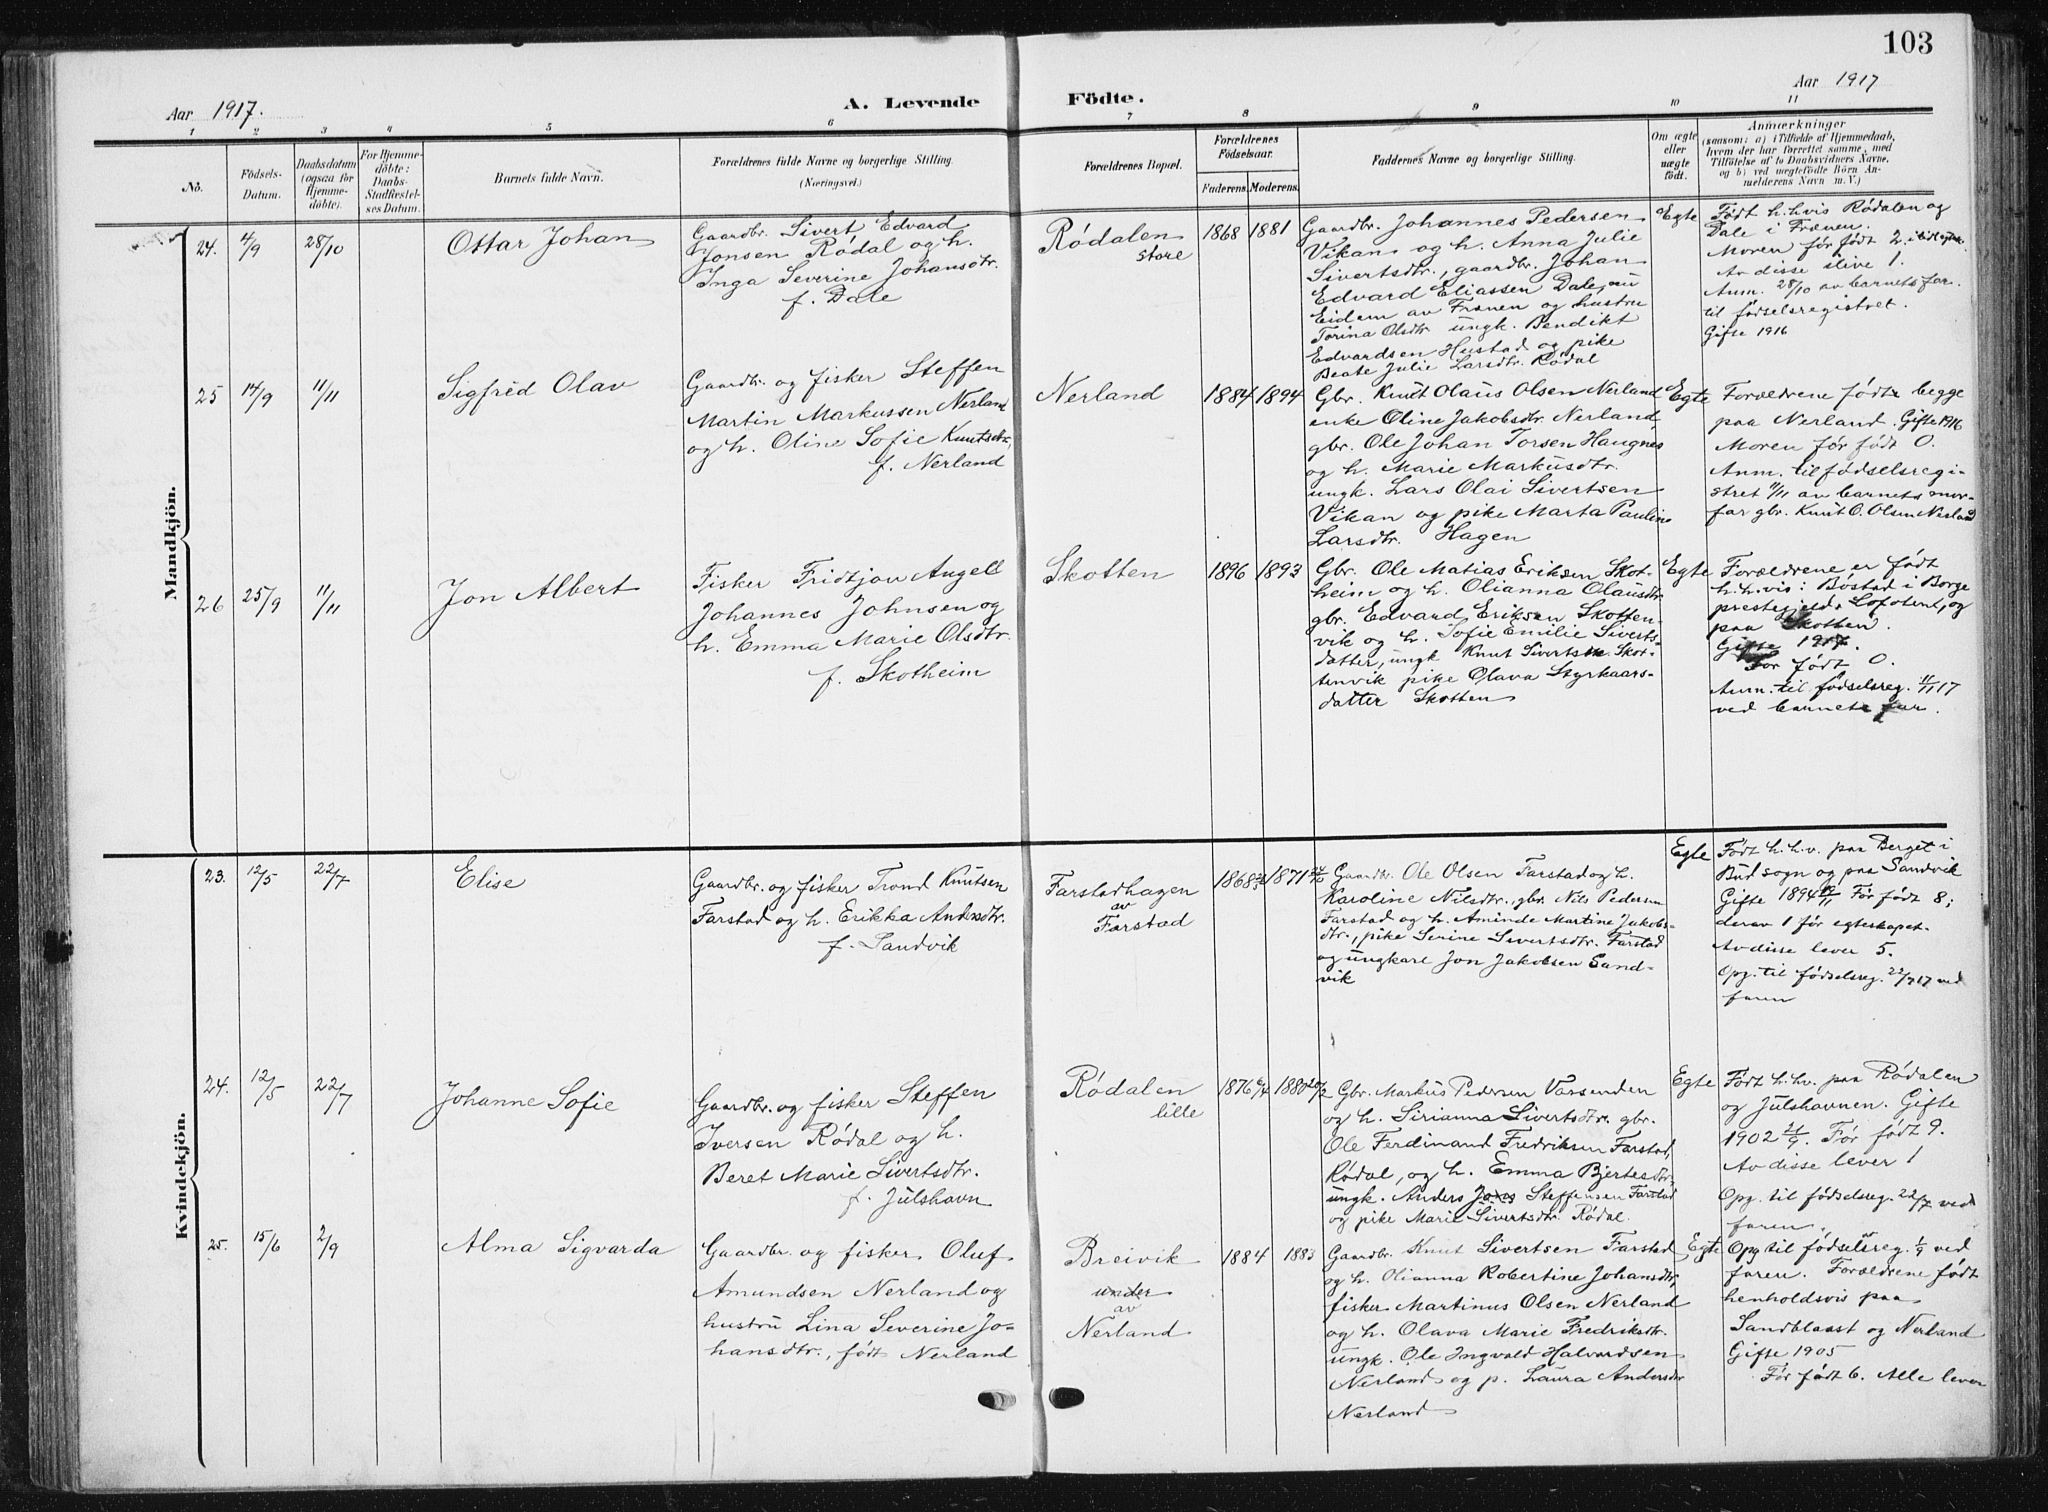 103
Aar 1917.
A. Levende Födte.
Aar 1917
1 2 3 4 5 6 7 8 9 10 11
No.
Födsels-Datum.
Daabsdatum (ogsaa for Hjemmedöbte).
For Hjemmedöbte: Daabs-Stadfæstelses Datum.
Barnets fulde Navn.
Forældrenes fulde Navne og borgerlige Stilling.
(Næringsvei.)
Forældrenes Bopæl.
Forældrenes Födselsaar.
Faderens. Moderens.
Faddernes Navne og borgerlige Stilling.
Om ægte eller uægte födt.
Anmærkninger
(saasom: a) i Tilfælde af Hjemmedaab,
hvem der har forrettet samme, med
Tilföielse af to Daabsvidners Navne,
og b) ved uægtefödte Börn An-
melderens Navn m. V.)
Mandkjön.
24. 4/9 28/10
Ottar Johan
Gaardbr. Sivert Edvard
Jonsen Rødal og h.
Inga Severine Johansdtr.
f. Dale
Rødalen
store
1868 1881
Gaardbr. Johannes Pedersen
Vikan og h. Anna Julie
Sivertsdtr., gaardbr. Johan
Edvard Eliassen Dale, nu
Eidem av Frænen og hustru
Torina Olsdtr. ungk. Bendikt
Edvardsen Hustad og pike
Beate Julie Larsdtr. Rødal
Egte
Født h.hvis Rødalen og
Dale i Frænen.
Moren før født 2
Av disse ilive 1.
Anm. 28/10 av barnets far
til fødselsregistret.
Gifte 1916
25 14/9 11/11
Sigfred Olav
Gaardbr. og fisker Steffen
Martin Markussen Nerland
og h. Oline Sofie Knutsdtr.
f. Nerland
Nerland
1884 1894
Gbr. Knut Olaus Olsen Nerland
enke Oline Jakobsdtr. Nerland,
gbr. Ole Johan Torsen Haugnes
og h. Marie Markusdtr.
ungk. Lars Olai Sivertsen
Vikan og pike Marta Pauline
Larsdtr. Hagen
Egte
Forældrene født begge
paa Nerland. Gifte 1916
Moren før født 0.
Anm. til fødselsregi-
stret 11/11 av barnets mor-
far gbr. Knut O. Olsen Nerland
26 25/9 11/11
Jon Albert
Fisker Fridtjov Angell
Johannes Johnsen og
h. Emma Marie Olsdtr.
f. Skotheim
Skotten
1896 1893
Gbr. Ole Matias Eriksen Skot-
heim og h. Olianna Olausdtr.
gbr. Edvard Eriksen Skotten-
vik og h. Sofie Emilie Siverts-
datter, ungk Knut Sivertsen Skot-
tenvik pike Olava Styrkaars-
datter Skotten
Egte
Forældrene er født
h.h.vis: Bøstad i Borge
prestegjeld, Lofoten, og
paa Skotten.
Gifte 1917.
Før født 0.
Anm. til fødselsreg. 11/11 17
ved barnets far.
Kvindekjön.
23. 12/5 22/7
Elise
Gaardbr. og fisker Trond Knutsen
Farstad og h. Erikka Andersdtr.
f. Sandvik
Farstadhagen
av
Farstad
1868 1871
Gaardbr. Ole Olsen Farstad og h.
Karoline Nilsdtr., gbr. Nils Pedersen
Farstad og h. Aminde Martine Jakobs-
dtr., pike Serine Sivertsdtr. Farstad
og ungkare Jon Jakobsen Sand-
vik
Egte
Født h.h.v. paa Berget i
Bud sogn og paa Sandvik
Gifte 1894 Før født 8;
derav 1 før egteskapet.
Av disse lever 5.
Opg. til fødselsreg. 22/7 17 ved
faren
24. 12/5 22/7
Johanne Sofie
Gaardbr. og fisker Steffen
Iversen Rødal og h.
Beret Marie Sivertsdtr.
f. Julshavn
Rødalen
lille
1876 1880 20/2
Gbr. Markus Pedersen Varsenden
og h. Sirianna Sivertsdtr. gbr.
Ole Ferdinand Fredriksen Farstad,
Rødal, og h. Emma Bjertesdtr,
ungk. Anders Jons Steffensen Farstad
og pike Marie Sivertsdtr. Rødal.
Egte
Født h.hv. paa Rødalen
og Julshavnen. Gifte
1902 21/9. Før født 9.
Av disse lever 1
Opg. til fødselsreg. 22/7 ved
faren.
25. 15/6 2/9
Alma Sigvarda
Gaardbr. og fisker Oluf
Amundsen Nerland og
hustru Lina Severine Jo-
hansdtr., født Nerland
Breivik
under
av
Nerland
1884 1883
Gaardbr Knut Sivertsen Farstad
og h. Olianna Robertine Johansdtr,
fisker Martinus Olsen Nerland
og h. Olava Marie Fredriksdtr.
ungk. Ole Ingvald Halvardsen
Nerland og p. Laura Andersdtr
Nerland
Egte
Opg til fødselsreg. 1/9 ved
faren. Forældrene født
henholdsvis paa
Sandblaast og Nerland
Gifte 1905
Før født 6. Alle lever